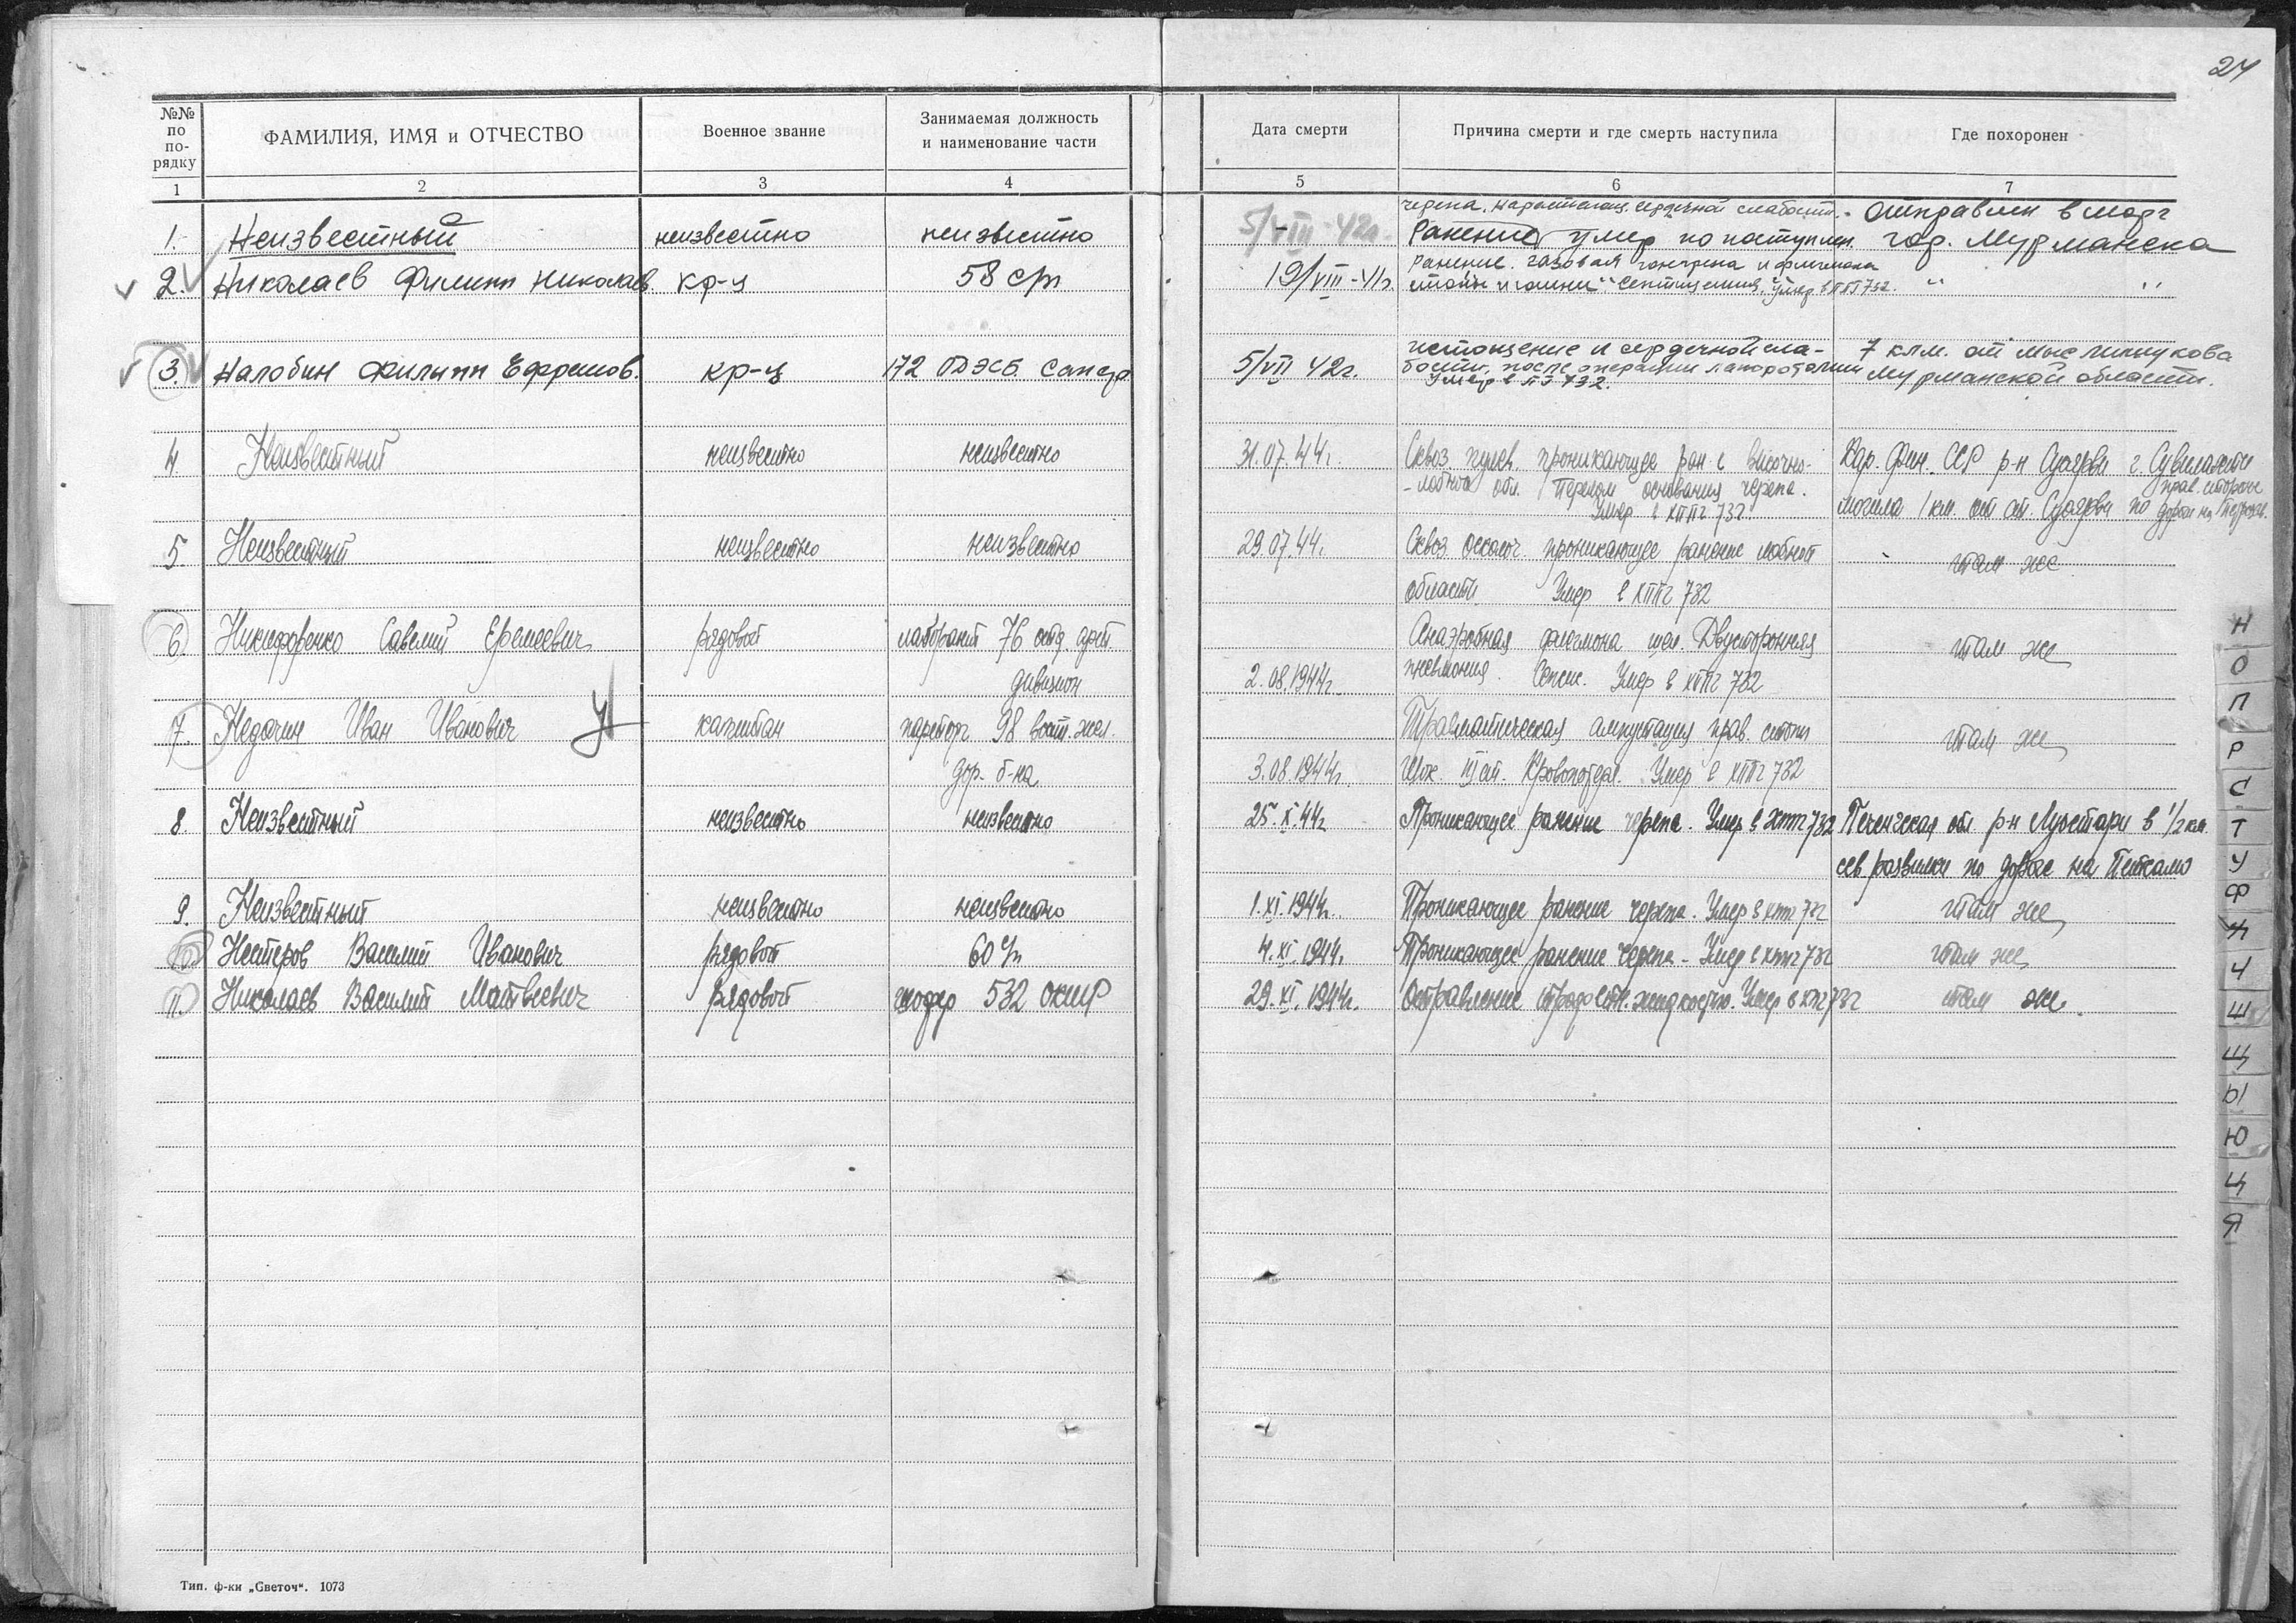 24
№№ по по-рядку
ФАМИЛИЯ, ИМЯ и ОТЧЕСТВО
Военное звание
Занимаемая должность и наименование части
Дата смерти
Причина смерти и где смерть наступила
Где похоронен
1 2 3 4 5 6 7
1. Неизвестный неизвестно неизвестно 5/VIII-42г.
черепа. сердечной слабости.
Ранение умер по поступлен.
Отправлен в морг
гор. Мурманска
2. Николаев Филипп Николаев. кр-ц 58 сп 19/VIII-41г.
Ранение. газовая гангрена и флегмона
стопы и голени. Септицемия. Умер в ППГ 732. " "
3. Налобин Филипп Ефремов. кр-ц 172 ОДЭСБ 5/VII 42г.
истощение и сердечной сла-
бости, после операции лапоротомии
Умер в ПГ 732.
7 клм. от мыс Мишукова
Мурманской области.
4. Неизвестный неизвестно неизвестно 31.07.44г.
Сквоз. пулев. проникающее ран. в височно-
-лобной обл. Перелом основания черепа.
Умер в ХППГ 732
Кар. Фин. ССР р-н Суоярви г.
прав. стороне
могила 1 км. от ст. Суоярви по дороге на
5 Неизвестный неизвестно неизвестно 29.07.44г.
Сквоз. осколоч. проникающее ранение лобной
области. Умер в ХППГ 732
там же
6. Никифоренко Савелий Еремеевич рядовой лаборант 76 отд. арт.
дивизион
2.08.1944г.
Анаэробная флегмона шеи. Двусторонняя
пневмония. Сепсис. Умер в ХППГ 732
там же
7. Недочин Иван Иванович капитан парторг 98 восст. жел.
дор. б-на
3.08.1944г.
Травматическая ампутация прав. стопы
Шок III ст. Кровопотеря. Умер в ХППГ 732
там же
8. Неизвестный неизвестно неизвестно 25.X.44г.
Проникающее ранение черепа. Умер в ХППГ 732
Печенгская обл р-н Луостари в 1/2 км.
сев. развилки по дороге на Петсамо
9. Неизвестный неизвестно неизвестно 1.XI.1944г.
Проникающее ранение черепа. Умер в ХППГ 732
там же
10. Нестеров Василий Иванович рядовой 60 4.XI.1944г.
Проникающее ранение черепа - Умер в ХППГ 732
там же
11. Николаев Василий Матвеевич рядовой шофер 532 29.XI.1944г.
Отравление жидкостью. Умер в ХППГ 732
там же.
Н
О
П
Р
С
Т
У
Ф
Х
Ч
Ш
Щ
Ы
Ю
Ц
Я
Тип. ф-ки „Светоч“. 1073